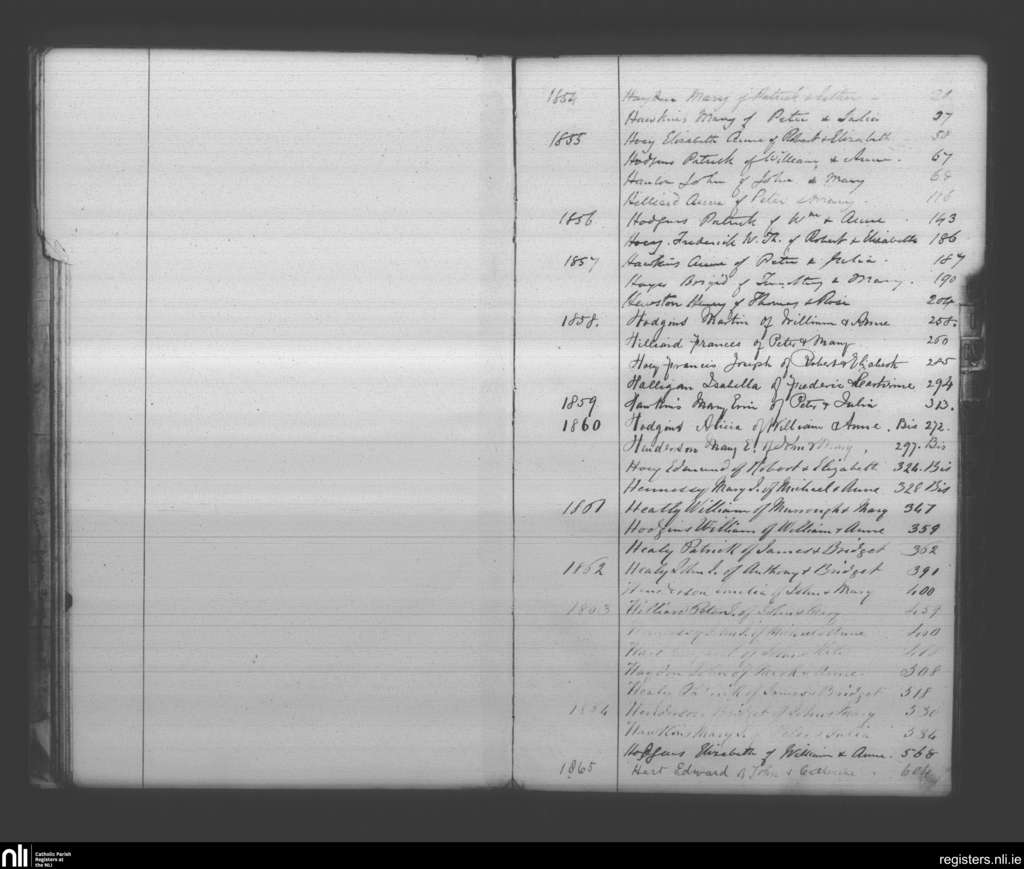 1854 Hayden Mary of Patrick &
Hawkins Mary of Peter & Julia 37
1855 Hoey Elizabeth Anne of Robert & Elizabeth 58
Hodgins Patrick of William & Anne. 67
Hanlon John of John & Mary 68
Hilliard Anne of Peter & Mary. 118
1856 Hodgins Patrick of Wm & Anne 143
Hoey. Frederick W. Th. of Robert & Elizabeth 186
1857 Hawkins Anne of Peter & Julia. 187
Hayes Brigid of Timothy & Mary. 190
Hewston Henry of Thomas & Rose 204
1858. Hodgins Martin of William & Anne 258.
Hilliard Frances of Peter & Mary 260
Hoey Francis Joseph of Robert & Elizabeth 285
Halligan Isabella of Frederic & Catherine 294
1859 Hawkins Mary Erin of Peter & Julia 313.
1860 Hodgins Alicia of William & Anne. Bis 272.
Henderson Mary E. of John & Mary, 297. Bis
Hoey Edmund of Robert & Elizabeth 324. Bis
Hennessy Mary J. of Michael & Anne 328 Bis
1861 Heatly William of Murrough & Mary 347
Hodgins William of William & Anne 359
Healy Patrick of James & Bridget 362
1862 Healy John J. of Anthony & Bridget 391
Henderson Amelia of John & Mary 400
1863 of John & Mary 459
Hennessy of Michael & Anne
Hart of
Haydon John of & Anne 508
Healy Patrick of James & Bridget 518
1864 Henderson Bridget of John & Mary 530
Hawkins Mary J. of Peter & Julia 534
Hodgins Elizabeth of William & Anne. 568
1865 Hart Edward of John & Catherine. 604
nli
Catholic Parish
Registers at
the NLI
registers.nli.ie